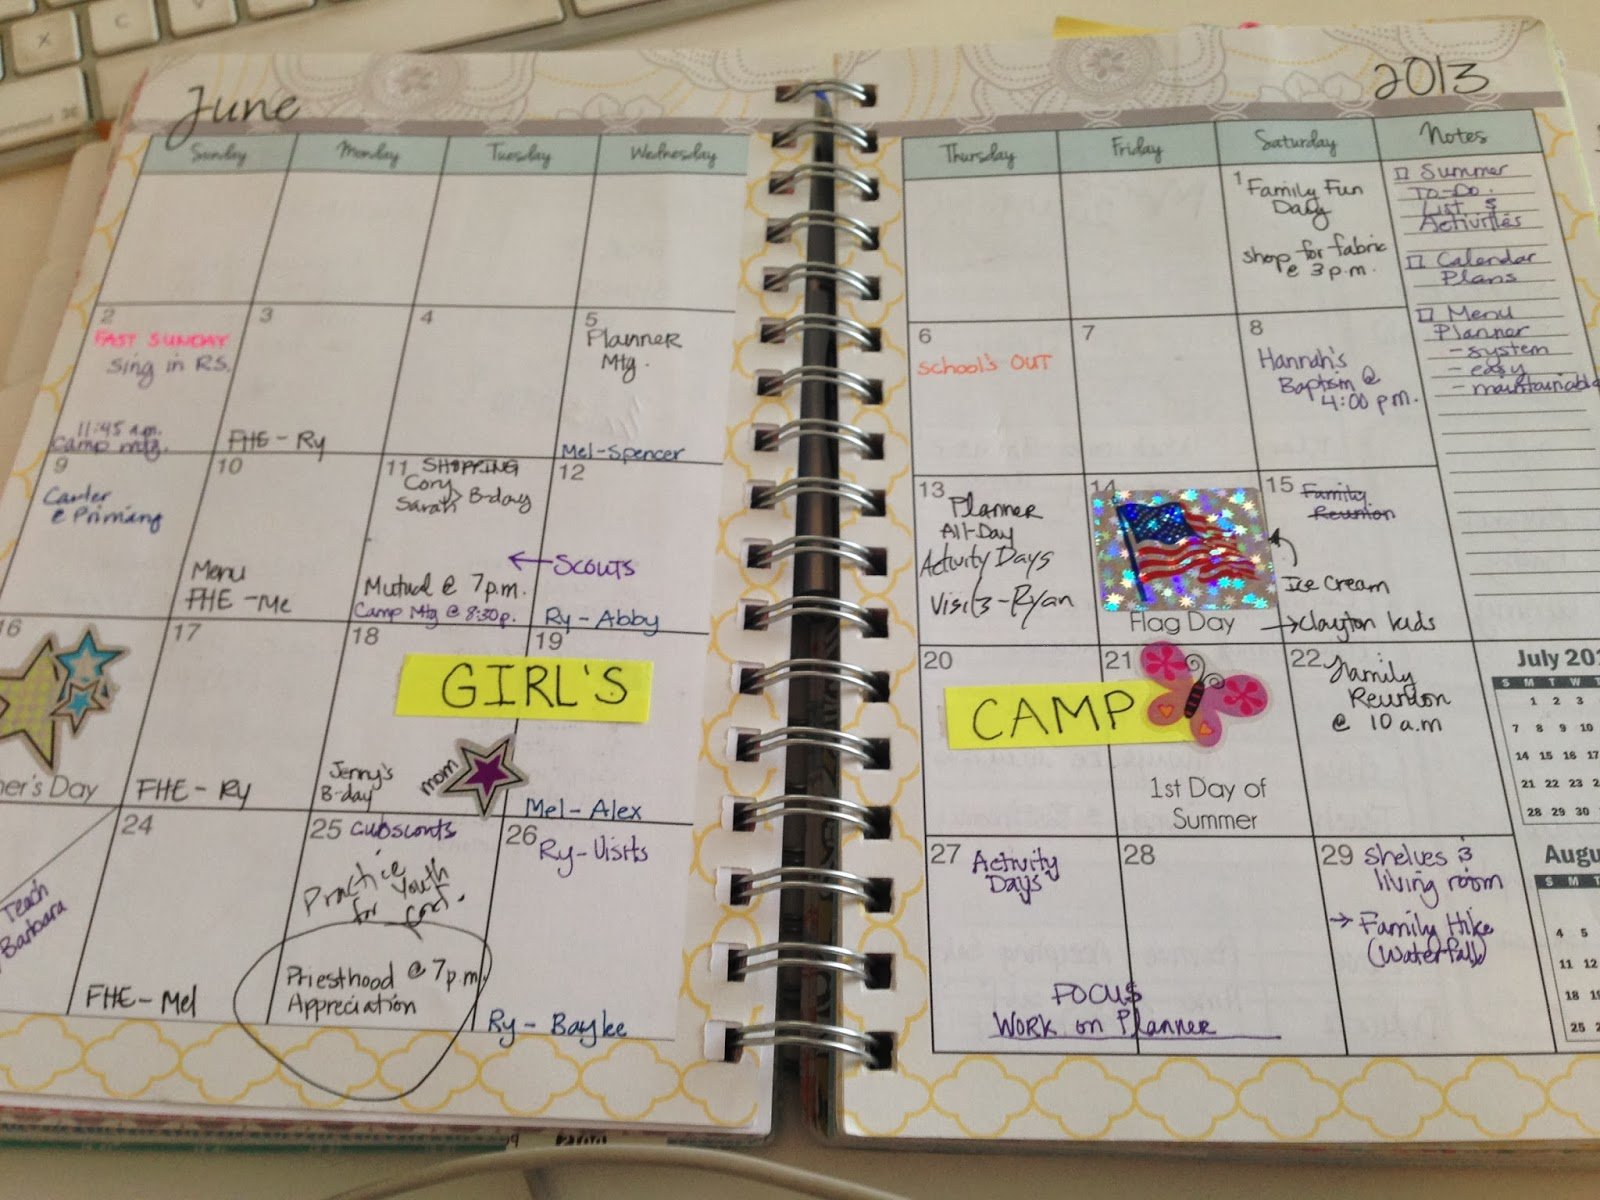 June
2013
Sunday
Monday
Tuesday
Wednesday
Thursday
Friday
Saturday
Notes
1 Family Fun
Day
shop for fabric
@ 3 p.m.
□ Summer
To-Do
List &
Activities
□ Calendar
Plans
□ Menu
Planner
- system
- easy
- maintainable
2
FAST SUNDAY
sing in RS.
11:45 a.m.
Camp mtg.
3
FHE - Ry
4
5
Planner
Mtg.
Mel-Spencer
6
School's OUT
7
8
Hannah's
Baptism @
4:00 p.m.
9
Carter
@ Primary
10
Menu
FHE - Me
11 SHOPPING
Cory
Sarah > B-day
Mutual @ 7 p.m.
Camp Mtg @ 8:30p.
12
← Scouts
Ry - Abby
13
Planner
All-Day
Activity Days
Visits-Ryan
14
Flag Day
15 Family
Reunion
Ice Cream
→ Clayton kids
16
er's Day
17
FHE - Ry
18
GIRL'S
Jenny's
B-day
mom
19
Mel - Alex
20
CAMP
21
1st Day of
Summer
22 Family
Reunion
@ 10 a.m
July 201
S M T W T
1 2 3
7 8 9 10
14 15 16 17
21 22 23 24
28 29 30
Teach
Barbara
24
FHE - Mel
25 Cubscouts
Practice
for Youth
Conf.
Priesthood @ 7 p.m.
Appreciation
26
Ry - Visits
Ry - Baylee
27 Activity
Days
28
FOCUS
WORK on Planner
29 Shelves &
living room
→ Family Hike
(Waterfall)
Augu
S M T
4 5
11 12
18 19
25